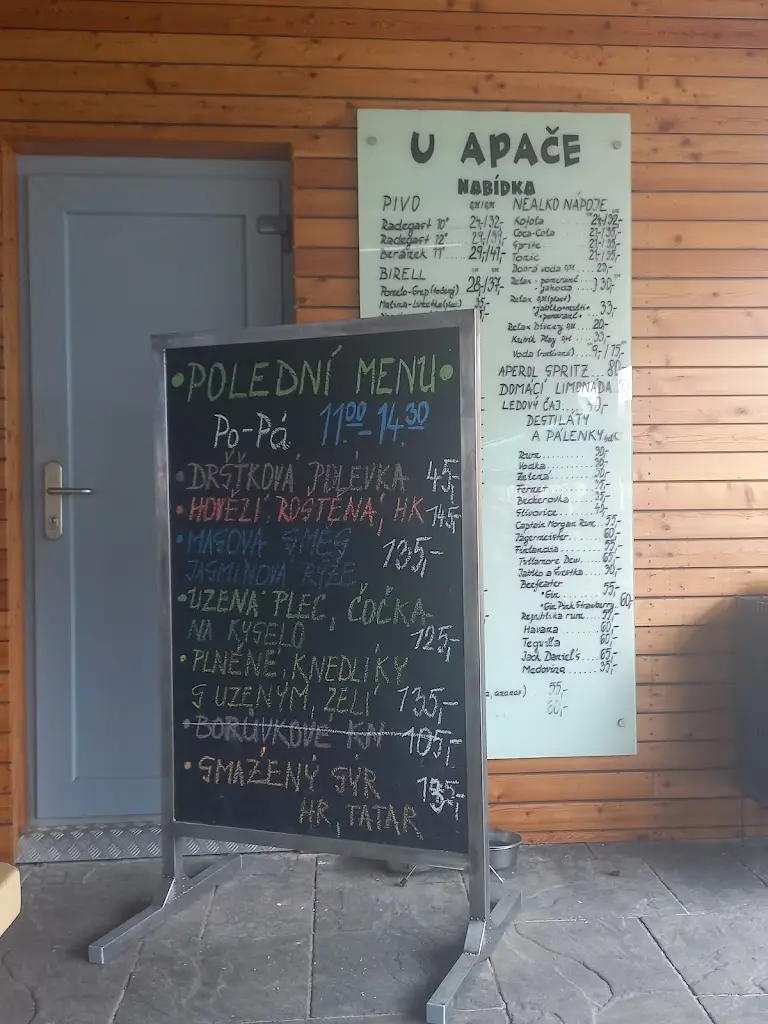 U APAČE
NABÍDKA
PIVO
Radegast 10° 24,-/32,-
Radegast 12° 29,-/39,-
Beránek 11° 29,-/41,-
BIRELL
Pomelo-Grep (točený) 28,-/37,-
NEALKO NÁPOJE
Kofola 24,-/32,-
Coca-Cola
Sprite
Tonic
Dobrá voda
Relax - pomeranč
- jahoda 30,-
Relax
• jablko • multi •
• pomeranč • 33,-
Relax Disney 20,-
Kubík Play 33,-
Voda 9,-/15,-
APEROL SPRITZ
DOMÁCÍ LIMONÁDA
LEDOVÝ ČAJ
DESTILÁTY
A PÁLENKY
Rum
Vodka
Zelená
Fernet
Becherovka
Slivovice
Captain Morgan Rum 55,-
Jägermeister 60,-
Finlandia 55,-
Tullamore Dew 65,-
Jablko a švestka 30,-
Beefeater
• Gin 55,-
• Gin Pink Strawberry 60,-
Republika rum 55,-
Havana 60,-
Tequilla 60,-
Jack Daniel's 65,-
Medovina 35,-
55,-
60,-
• POLEDNÍ MENU •
Po-Pá 11.00-14.30
• DRŠŤKOVÁ POLÉVKA 45,-
• HOVĚZÍ ROŠTĚNÁ, HK 145,-
• MASOVÁ SMĚS 135,-
JASMÍNOVÁ RÝŽE
• UZENÁ PLEC, ČOČKA
NA KYSELO 125,-
• PLNĚNÉ KNEDLÍKY
S UZENÝM, ZELÍ 135,-
• BORŮVKOVÉ KN 105,-
• SMAŽENÝ SÝR
HR, TATAR